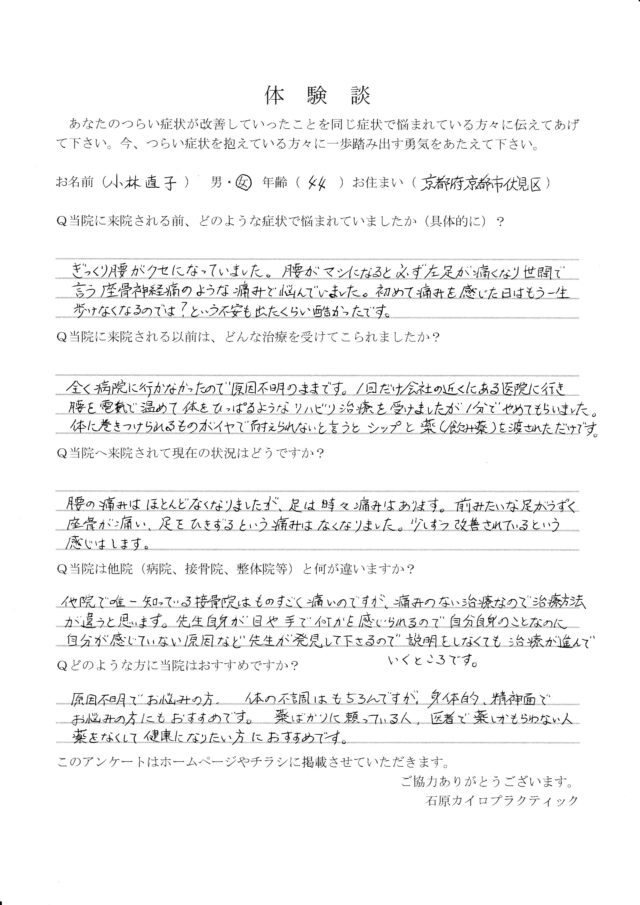 体験談
あなたのつらい症状が改善していったことを同じ症状で悩まれている方々に伝えてあげ
て下さい。今、つらい症状を抱えている方々に一歩踏み出す勇気をあたえて下さい。
お名前（小林直子）　男・女　年齢（44）お住まい（京都府京都市伏見区）
Ｑ当院に来院される前、どのような症状で悩まれていましたか（具体的に）？
ぎっくり腰がクセになっていました。腰がマシになると必ず左足が痛くなり世間で
言う座骨神経痛のような痛みで悩んでいました。初めて痛みを感じた日はもう一生
歩けなくなるのでは？という不安も出たくらい酷かったです。
Ｑ当院に来院される以前は、どんな治療を受けてこられましたか？
全く病院に行かなかったので原因不明のままです。1回だけ会社の近くにある医院に行き
腰を電気で温めて体をひっぱるようなリハビリ治療を受けましたが1分でやめてもらいました。
体に巻きつけられるものがイヤで耐えられないと言うとシップと薬（飲み薬）を渡されただけです。
Ｑ当院へ来院されて現在の状況はどうですか？
腰の痛みはほとんどなくなりましたが、足は時々痛みはあります。前みたいな足がうずく
座骨が痛い、足をひきずるという痛みはなくなりました。少しずつ改善されているという
感じはします。
Ｑ当院は他院（病院、接骨院、整体院等）と何が違いますか？
他院で唯一知っている接骨院はものすごく痛いのですが、痛みのない治療なので治療方法
が違うと思います。先生自身が目や手で何かを感じられるので自分自身のことなのに
自分が感じていない原因など先生が発見して下さるので説明をしなくても治療が進んで
いくところです。
Ｑどのような方に当院はおすすめですか？
原因不明でお悩みの方、体の不調はもちろんですが、身体的、精神面で
お悩みの方にもおすすめです。薬ばかりに頼っている人、医者で薬しかもらわない人
薬をなくして健康になりたい方におすすめです。
このアンケートはホームページやチラシに掲載させていただきます。
ご協力ありがとうございます。
石原カイロプラクティック